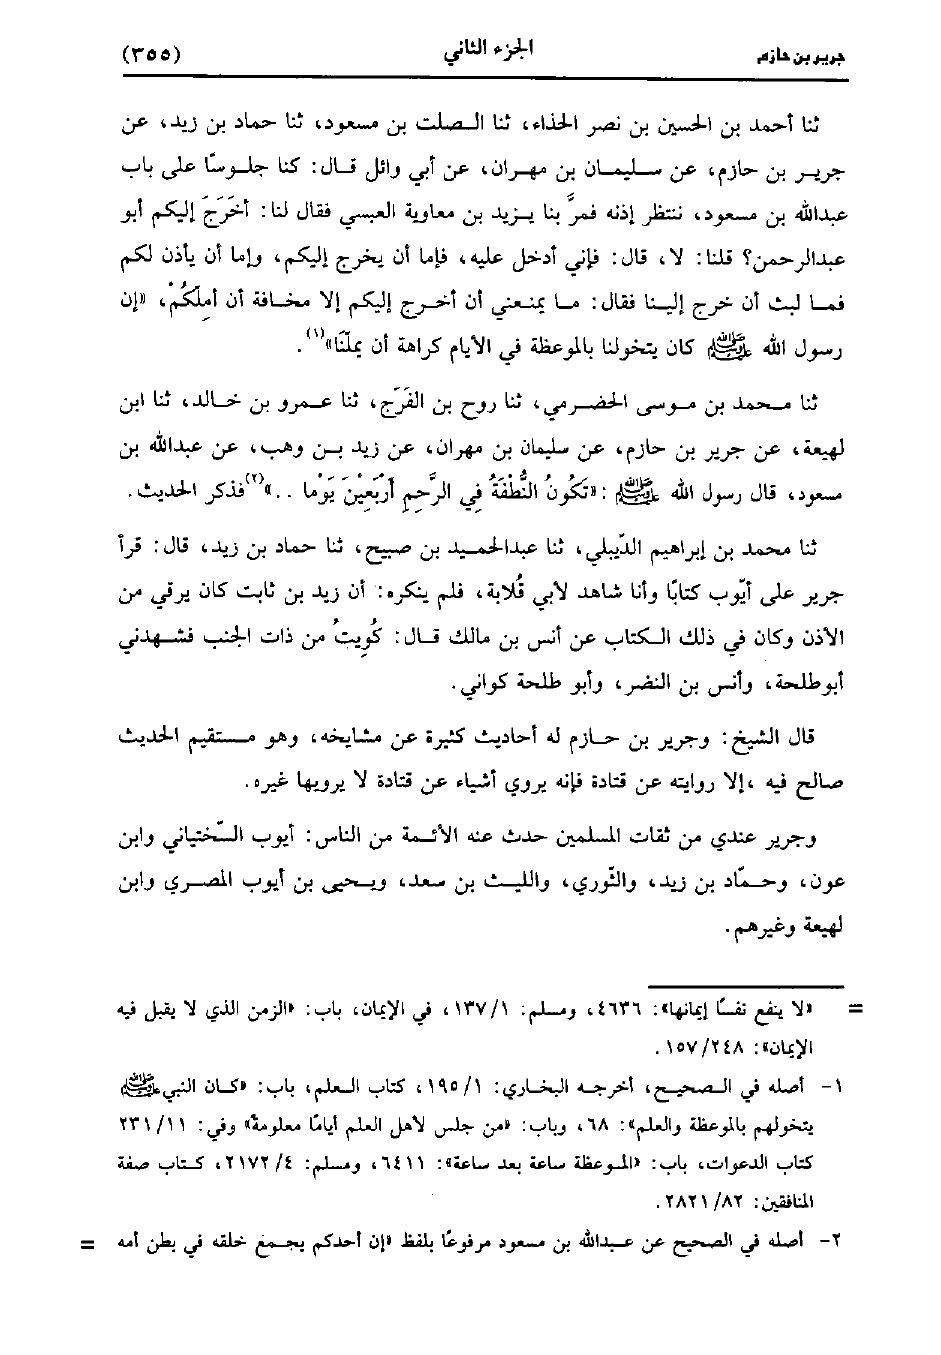 جرير بن حازم الجزء الثاني (٣٥٥)
ثنا أحمد بن الحسين بن نصر الحذاء، ثنا الصلت بن مسعود، ثنا حماد بن زيد، عن
جرير بن حازم، عن سليمان بن مهران، عن أبي وائل قال: كنا جلوسًا على باب
عبدالله بن مسعود، ننتظر إذنه فمرَّ بنا يزيد بن معاوية العبسي فقال لنا: أخَرَجَ إليكم أبو
عبدالرحمن؟ قلنا: لا، قال: فإني أدخل عليه، فإما أن يخرج إليكم، وإما أن يأذن لكم
فما لبث أن خرج إلينا فقال: ما يمنعني أن أخرج إليكم إلا مخافة أن أمِلكُمْ، «إن
رسول الله ﷺ كان يتخولنا بالموعظة في الأيام كراهة أن يملَّنا»(١).
ثنا محمد بن موسى الحضرمي، ثنا روح بن الفَرَج، ثنا عمرو بن خالد، ثنا ابن
لهيعة، عن جرير بن حازم، عن سليمان بن مهران، عن زيد بن وهب، عن عبدالله بن
مسعود، قال رسول الله ﷺ: «تَكُونُ النُّطْفَةُ فِي الرَّحِمِ أرْبَعْينَ يَوْمًا ..»(٢)فذكر الحديث.
ثنا محمد بن إبراهيم الدّيبلي، ثنا عبدالحميد بن صبيح، ثنا حماد بن زيد، قال: قرأ
جرير على أيّوب كتابًا وأنا شاهد لأبي قُلابة، فلم ينكره: أن زيد بن ثابت كان يرقي من
الأذن وكان في ذلك الكتاب عن أنس بن مالك قال: كُوِيتُ من ذات الجنب فشهدني
أبوطلحة، وأنس بن النضر، وأبو طلحة كواني.
قال الشيخ: وجرير بن حازم له أحاديث كثيرة عن مشايخه، وهو مستقيم الحديث
صالح فيه ،إلا روايته عن قتادة فإنه يروي أشياء عن قتادة لا يرويها غيره.
وجرير عندي من ثقات المسلمين حدث عنه الأئمة من الناس: أيوب السّختياني وابن
عون، وحمّاد بن زيد، والثّوري، والليث بن سعد، ويحيى بن أيوب المصري وابن
لهيعة وغيرهم.
= «لا ينفع نفسًا إيمانها»: ٤٦٣٦، ومسلم: ١/ ١٣٧، في الإيمان، باب: «الزمن الذي لا يقبل فيه
الإيمان»: ٢٤٨/ ١٥٧.
١- أصله في الصحيح، أخرجه البخاري: ١/ ١٩٥، كتاب العلم، باب: «كان النبي ﷺ
يتخولهم بالموعظة والعلم»: ٦٨، وباب: «من جلس لأهل العلم أيامًا معلومة» وفي: ١١/ ٢٣١
كتاب الدعوات، باب: «الموعظة ساعة بعد ساعة»: ٦٤١١، ومسلم: ٤/ ٢١٧٢، كتاب صفة
المنافقين: ٨٢/ ٢٨٢١.
٢- أصله في الصحيح عن عبدالله بن مسعود مرفوعًا بلفظ «إن أحدكم يجمع خلقه في بطن أمه =